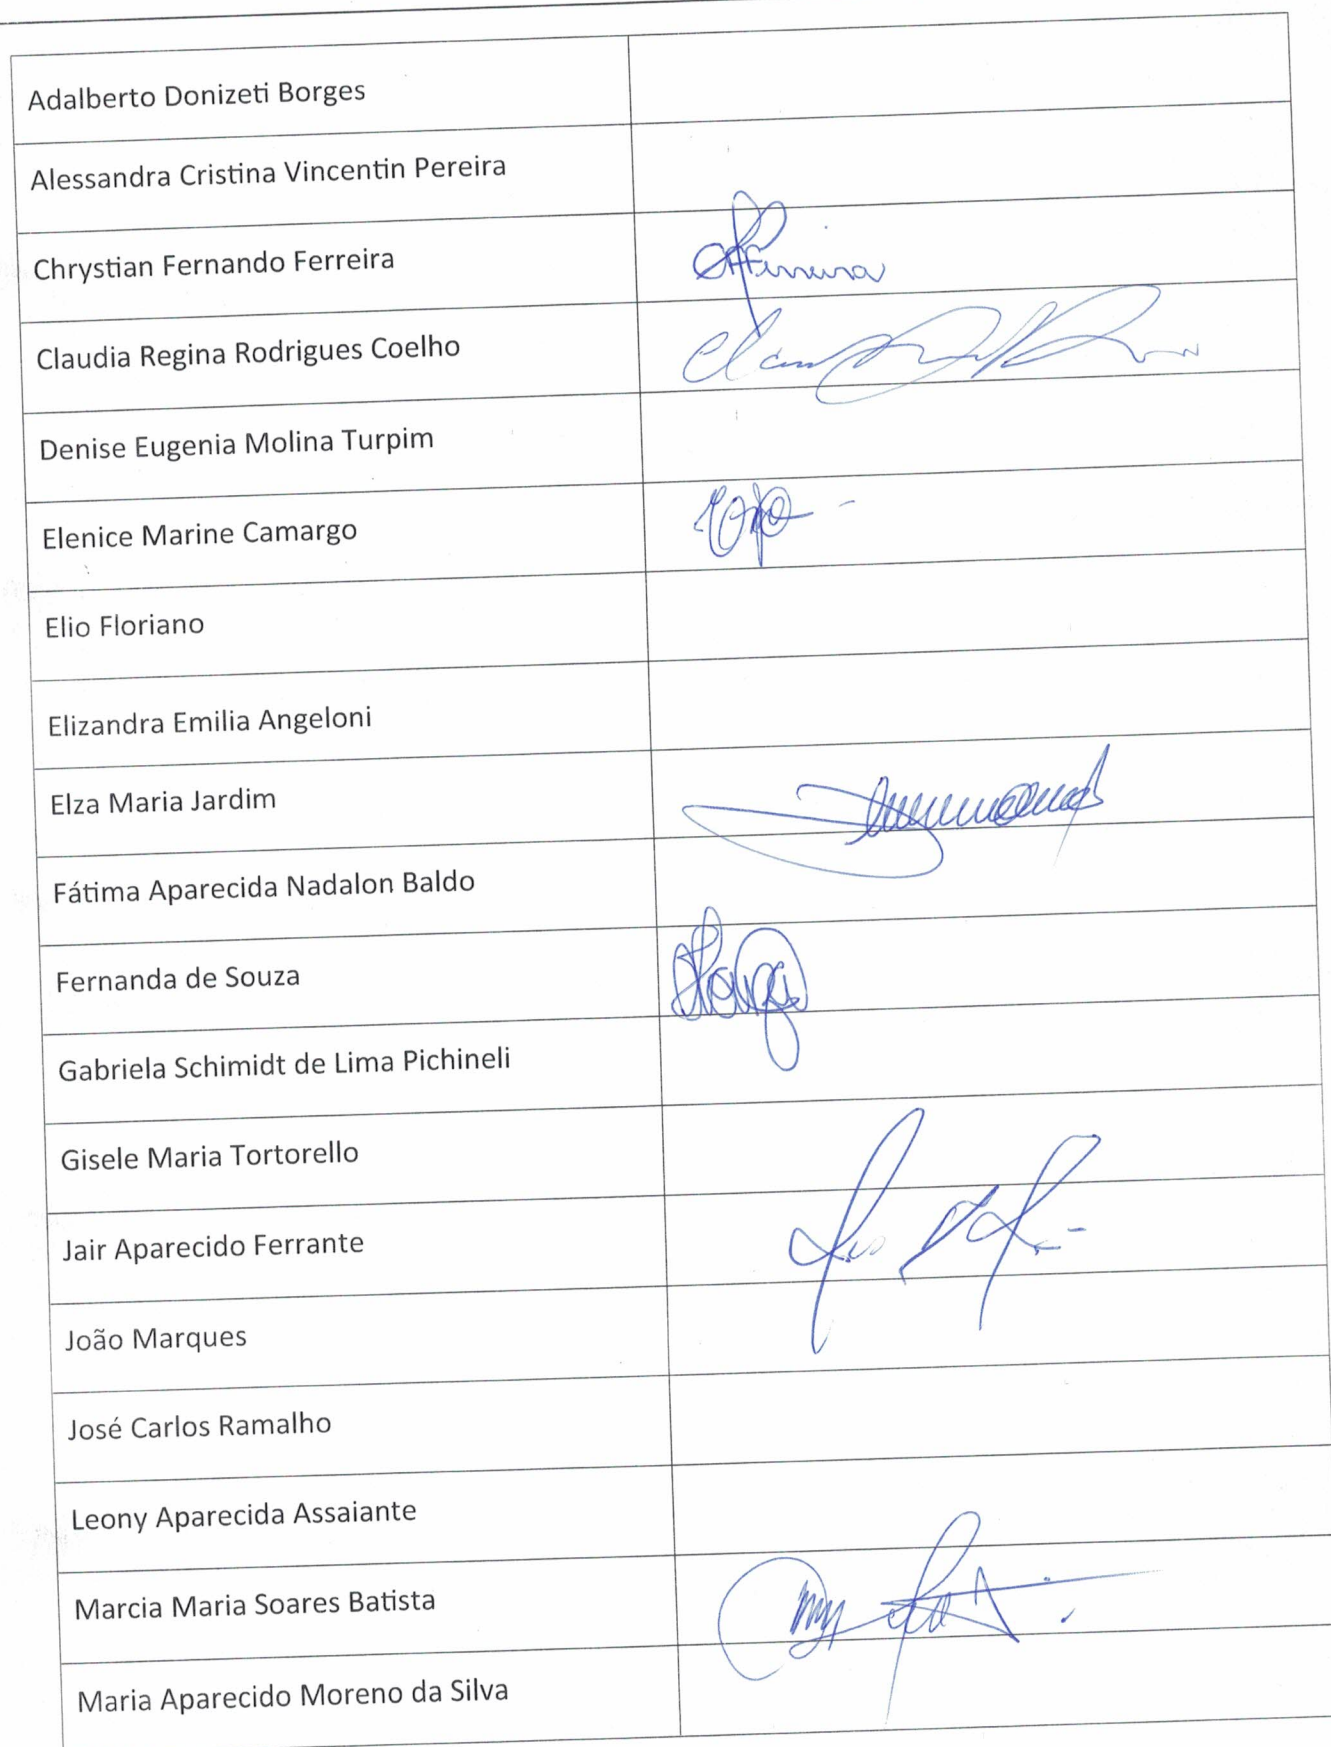 Adalberto Donizeti Borges
Alessandra Cristina Vincentin Pereira
Chrystian Fernando Ferreira
Claudia Regina Rodrigues Coelho
Denise Eugenia Molina Turpim
Elenice Marine Camargo
Elio Floriano
Elizandra Emilia Angeloni
Elza Maria Jardim
Fátima Aparecida Nadalon Baldo
Fernanda de Souza
Gabriela Schimidt de Lima Pichineli
Gisele Maria Tortorello
Jair Aparecido Ferrante
João Marques
José Carlos Ramalho
Leony Aparecida Assaiante
Marcia Maria Soares Batista
Maria Aparecido Moreno da Silva